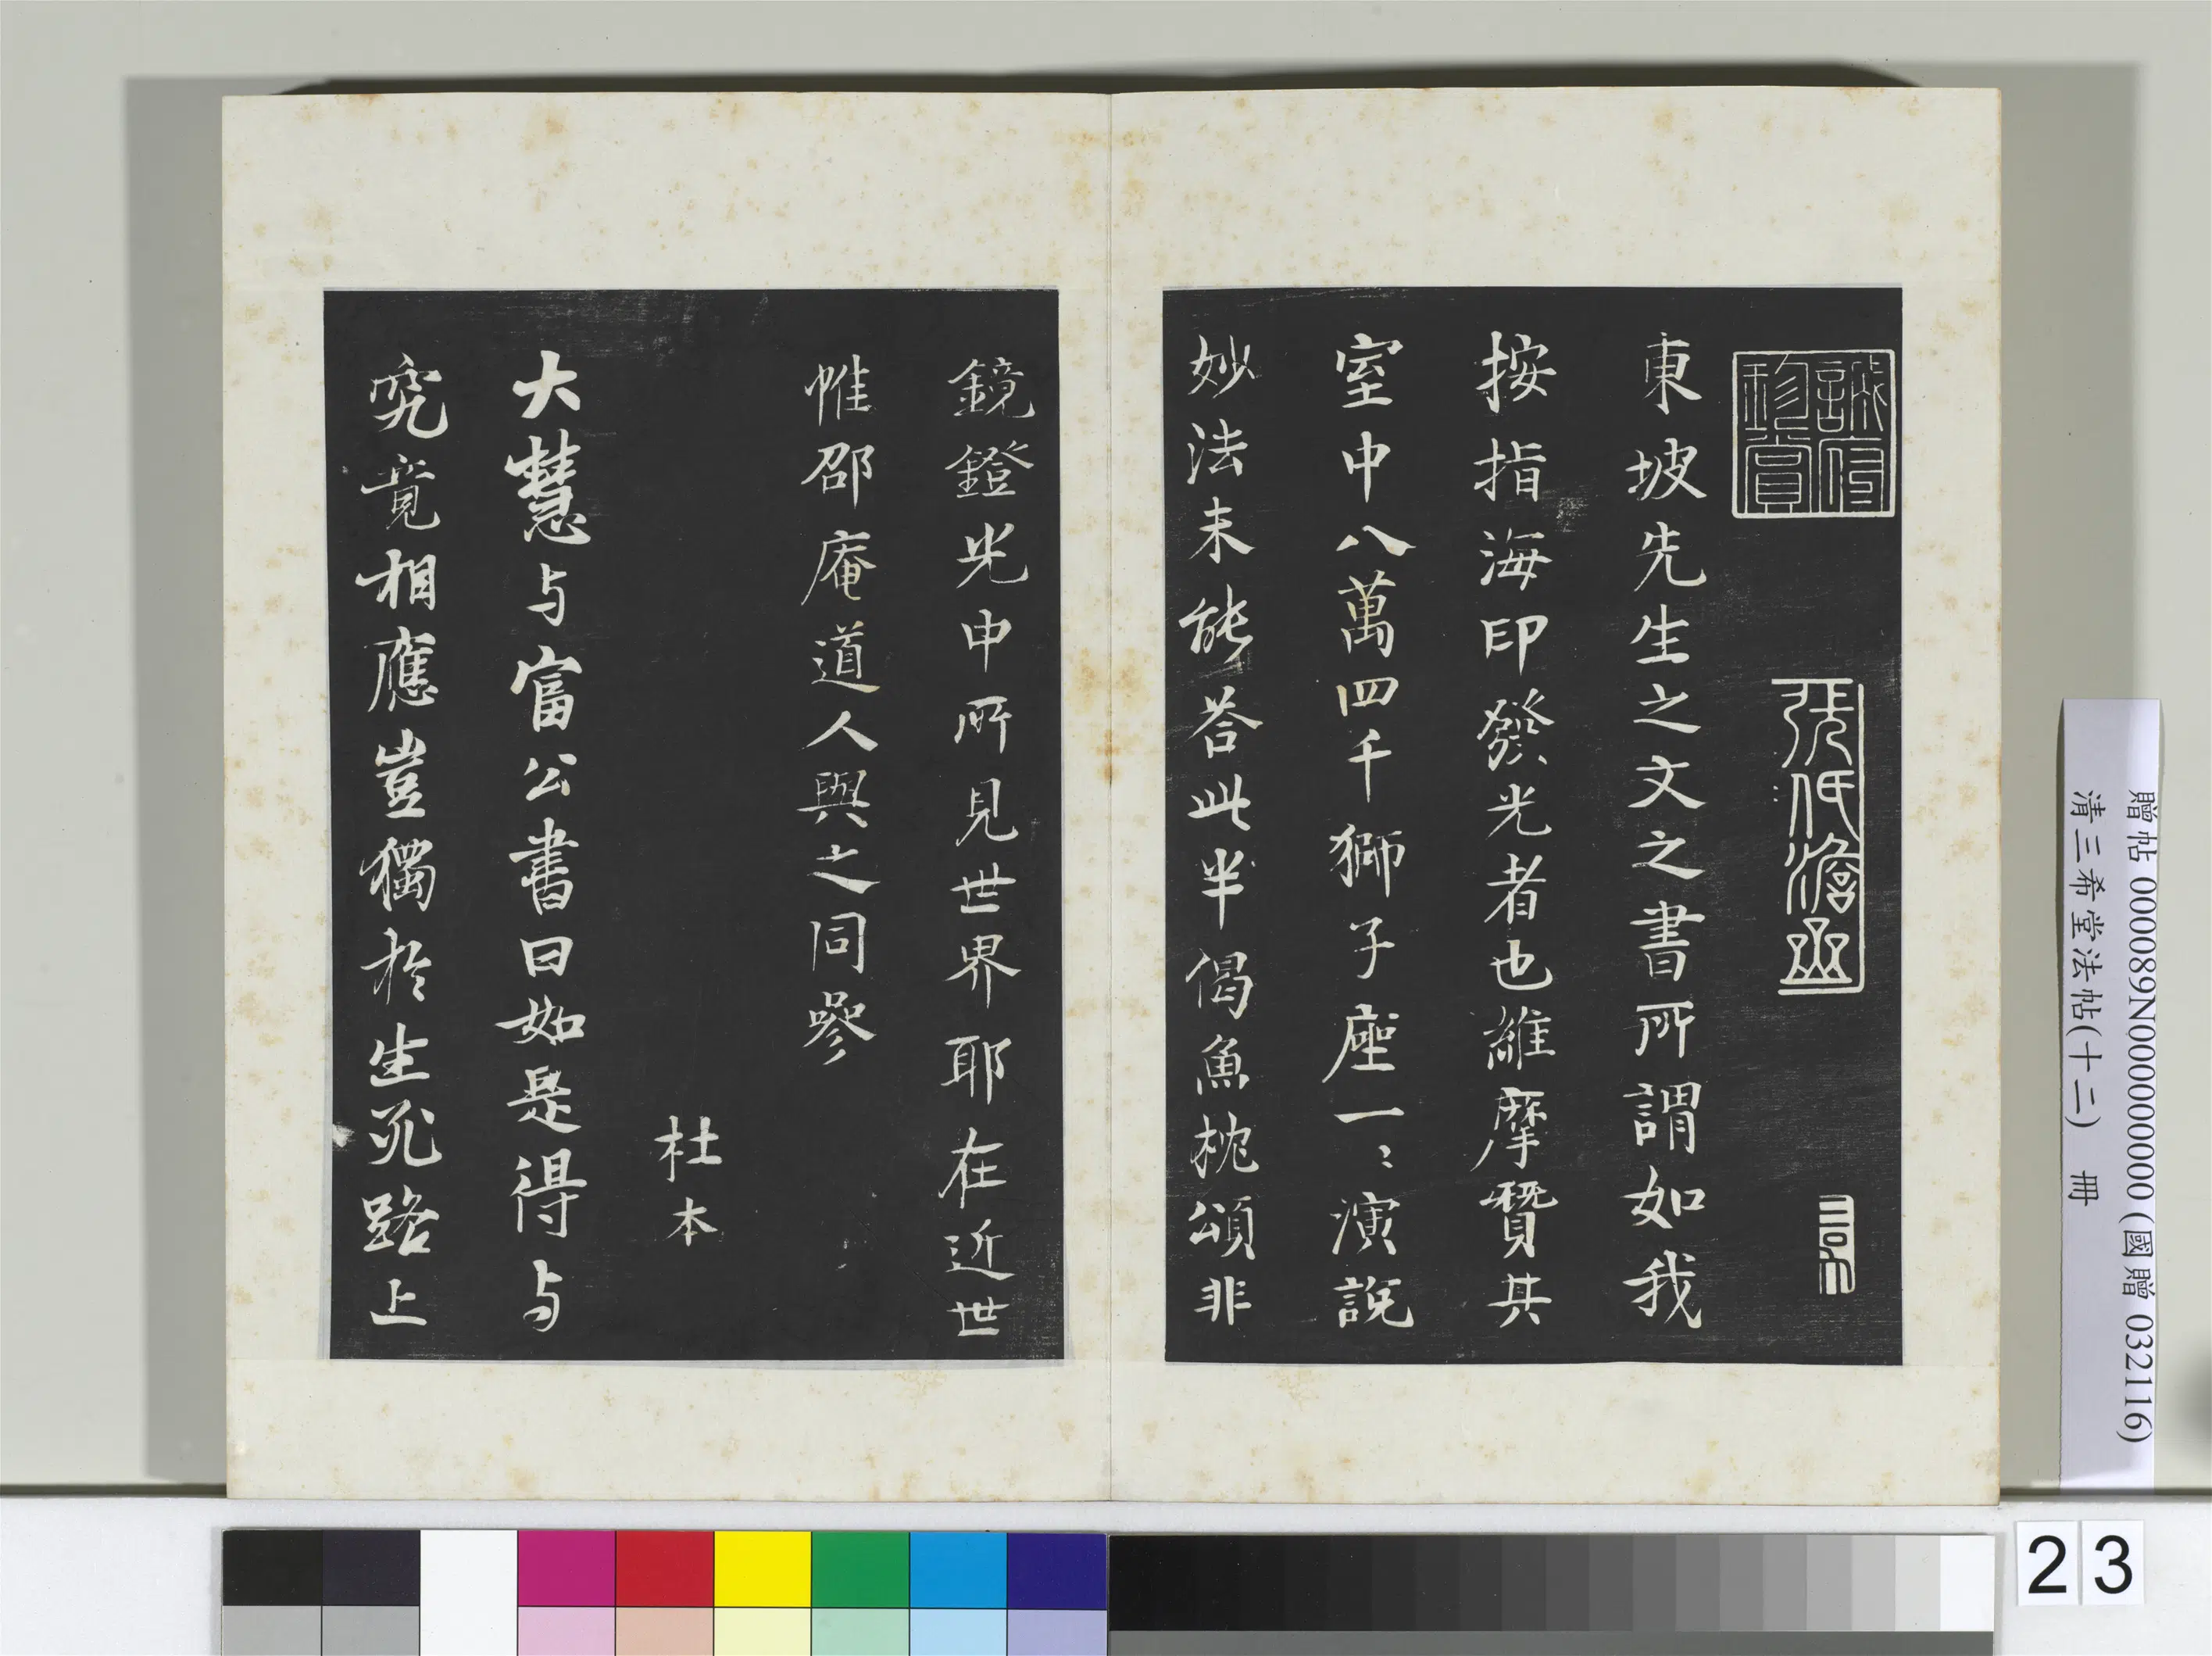 東坡先生之文之書所謂如我
按指海印發光者也維摩贊其
室中八萬四千獅子座一〻演說
妙法未能荅此半偈魚枕頌非
鏡鐙光中所見世界耶在近世
惟邵庵道人與之同參
杜本
大慧与富公書曰如是得与
究竟相應豈獨於生死路上
贈帖 000089N000000000 (國贈 032116)
清三希堂法帖(十二) 冊
23